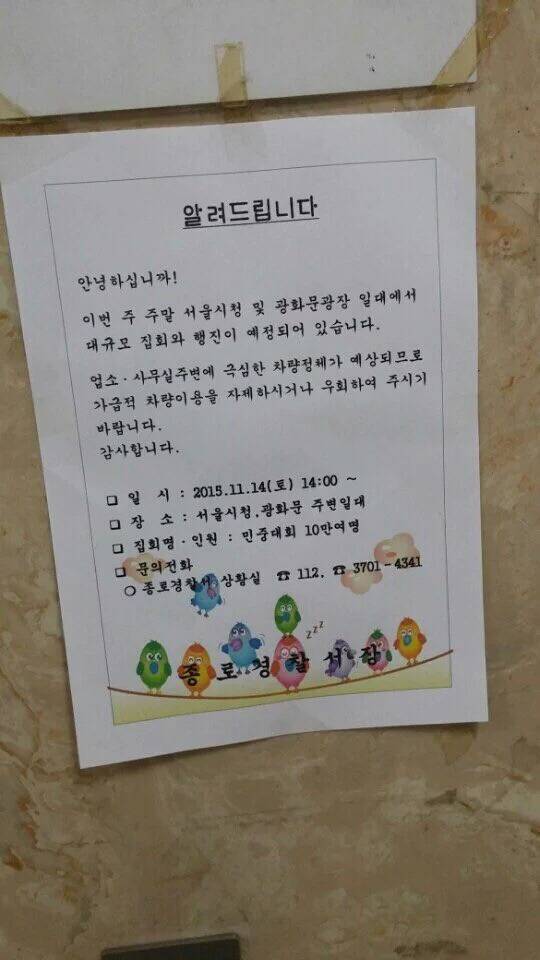 알려드립니다
안녕하십니까!
이번 주 주말 서울시청 및 광화문광장 일대에서
대규모 집회와 행진이 예정되어 있습니다.
업소·사무실주변에 극심한 차량정체가 예상되므로
가급적 차량이용을 자제하시거나 우회하여 주시기
바랍니다.
감사합니다.
□ 일 시 : 2015.11.14(토) 14:00 ~
□ 장 소 : 서울시청,광화문 주변일대
□ 집회명·인원 : 민중대회 10만여명
□ 문의전화
○ 종로경찰서 상황실 ☎ 112. ☎ 3701-4341
zzz
종로경찰서장